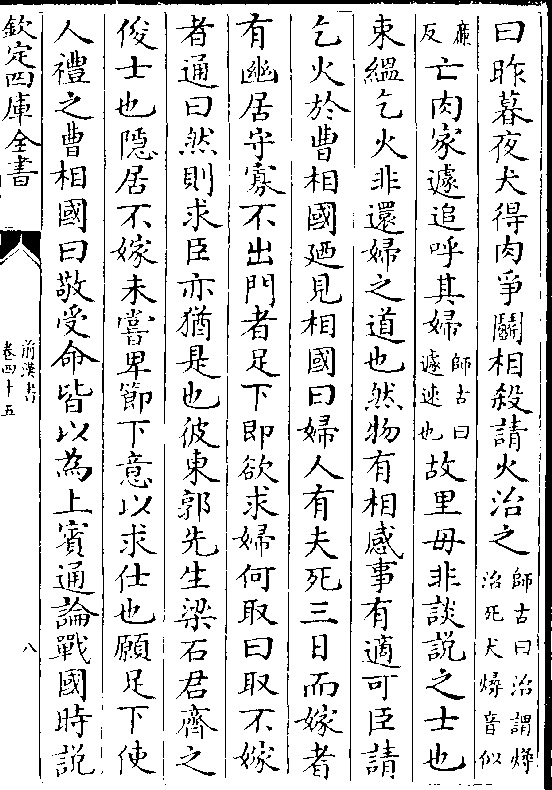 曰昨暮夜犬得肉爭鬬相殺請火治之師古曰治謂燖治死犬燖音似
廉反亡肉家遽追呼其婦師古曰遽速也故里母非談説之士也
束緼乞火非還婦之道也然物有相感事有適可臣請
乞火於曹相國廼見相國曰婦人有夫死三日而嫁者
有幽居守寡不出門者足下即欲求婦何取曰取不嫁
者通曰然則求臣亦猶是也彼東郭先生梁石君齊之
俊士也隱居不嫁未嘗卑節下意以求仕也願足下使
人禮之曹相國曰敬受命皆以為上賓通論戰國時説
欽定四庫全書
前漢書
卷四十五
八